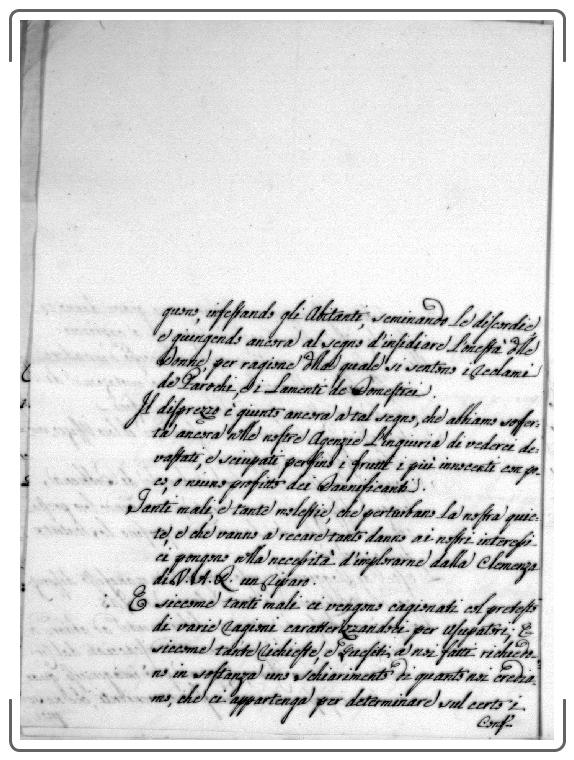 guono, infestando gli Abitanti, seminando le discordie
e giungendo ancora al segno d'insidiare l'onestà dlle
Donne, per ragione dlla quale si sentono i Reclami
de Parochi, e i Lamenti de Domestici.
Il disprezzo è giunto ancora a tal segno, che abbiamo soffer-
ta ancora nlle nostre Agenzie l'ingiuria di vederci de-
vastati, e sciupati perfino i frutti i piu innocenti con po-
co, o niuno profitto dei Dannificanti.
Tanti mali, e tante molestie, che perturbano la nostra quie-
te, e che vanno a recare tanto danno ai nostri interessi
ci pongono nlla necessità d'implorarne dalla Clemenza
di V. A. R. un riparo.
E siccome tanti mali ci vengono cagionati col pretesto
di varie ragioni caratterizzandoci per Usurpatori; E
siccome tante richieste e Quesiti a noi fatti richiedo-
no in sostanza uno schiarimento di quanto noi credia-
mo, che ci appartenga per determinare sul certo i
Conf-